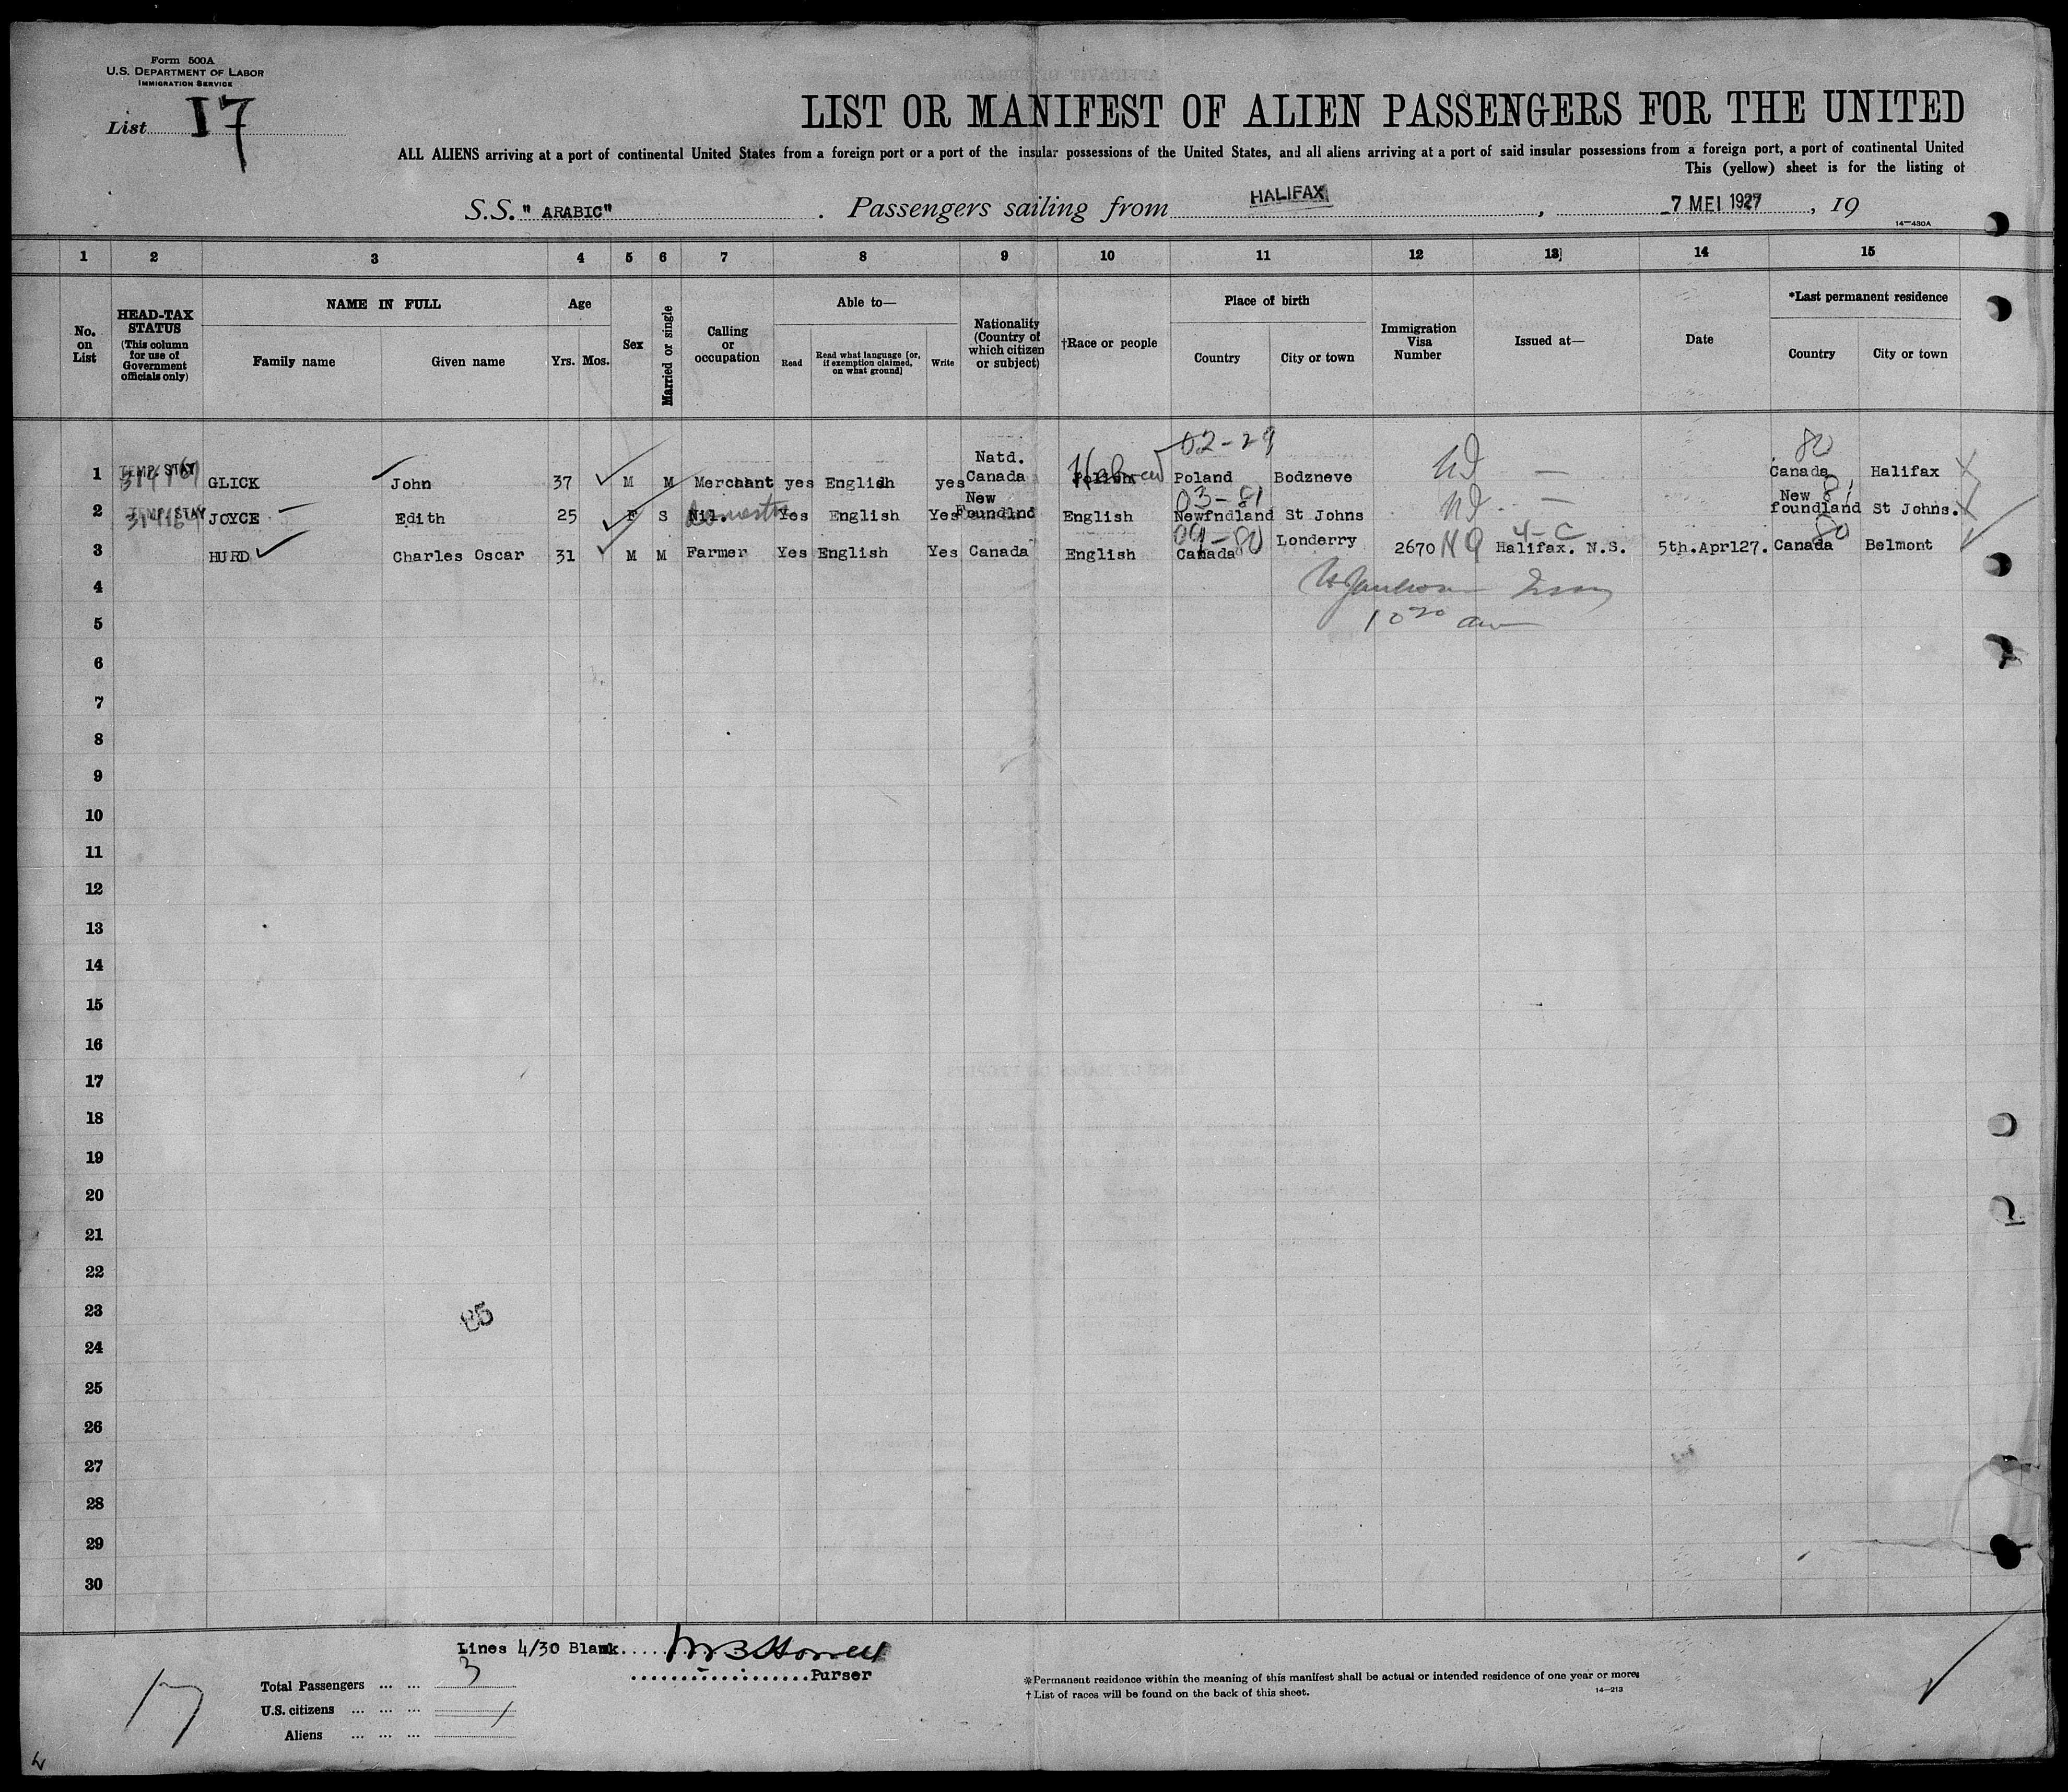 Form 500A
U.S. DEPARTMENT OF LABOR
IMMIGRATION SERVICE
List 17
LIST OR MANIFEST OF ALIEN PASSENGERS FOR THE UNITED
ALL ALIENS arriving at a port of continental United States from a foreign port or a port of the insular possessions of the United States, and all aliens arriving at a port of said insular possessions from a foreign port, a port of continental United
This (yellow) sheet is for the listing of
S.S. "ARABIC" . Passengers sailing from HALIFAX , 7 MEI 1927 , 19
14—430A
1 2 3 4 5 6 7 8 9 10 11 12 13 14 15
No. on List
HEAD-TAX STATUS (This column for use of Government officials only)
NAME IN FULL
Family name Given name
Age
Yrs. Mos.
Sex
Married or single
Calling or occupation
Able to—
Read Read what language [or, if exemption claimed, on what ground] Write
Nationality (Country of which citizen or subject)
†Race or people
Place of birth
Country City or town
Immigration Visa Number
Issued at—
Date
*Last permanent residence
Country City or town
02-29 80
1 TEMP. STAY GLICK John 37 M M Merchant yes English yes Natd. Canada Polish Hebrew Poland Bodzneve — Canada Halifax
03-81 81
2 TEMP. STAY JOYCE Edith 25 F S Nil. Domestic Yes English Yes New Foundlnd English Newfndland St Johns — New foundland St Johns.
09-80 4-C 80
3 HURD Charles Oscar 31 M M Farmer Yes English Yes Canada English Canada Londerry 2670 NQ Halifax. N.S. 5th.Apr127. Canada Belmont
4
10 20 am
5
6
7
8
9
10
11
12
13
14
15
16
17
18
19
20
21
22
23
85
24
25
26
27
28
29
30
Lines 4/30 Blank.....
..................Purser
Total Passengers ... ... 3
U.S. citizens ... ... ... /
Aliens ... ... ...
17
*Permanent residence within the meaning of this manifest shall be actual or intended residence of one year or more.
† List of races will be found on the back of this sheet.
14—213